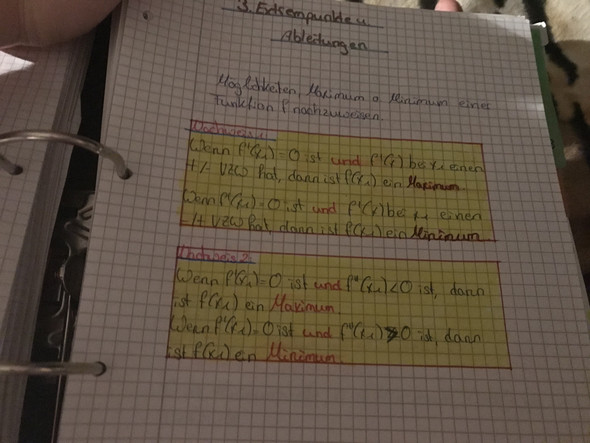 3. Extrempunkte u
Ableitungen
Möglichkeiten, Maximum o. Minimum einer
Funktion f nachzuweisen.
Nachweis 1:
Wenn f'(x₁)=0 ist und f'(x) bei x₁ einen
+/- VZW hat, dann ist f(x₁) ein Maximum.
Wenn f'(x₁)=0 ist und f'(x) bei x₁ einen
-/+ VZW hat, dann ist f(x₁) ein Minimum
Nachweis 2:
Wenn f'(x₁)=0 ist und f"(x₁)<0 ist, dann
ist f(x₁) ein Maximum
Wenn f'(x₁)=0 ist und f"(x₁)>0 ist, dann
ist f(x₁) ein Minimum.